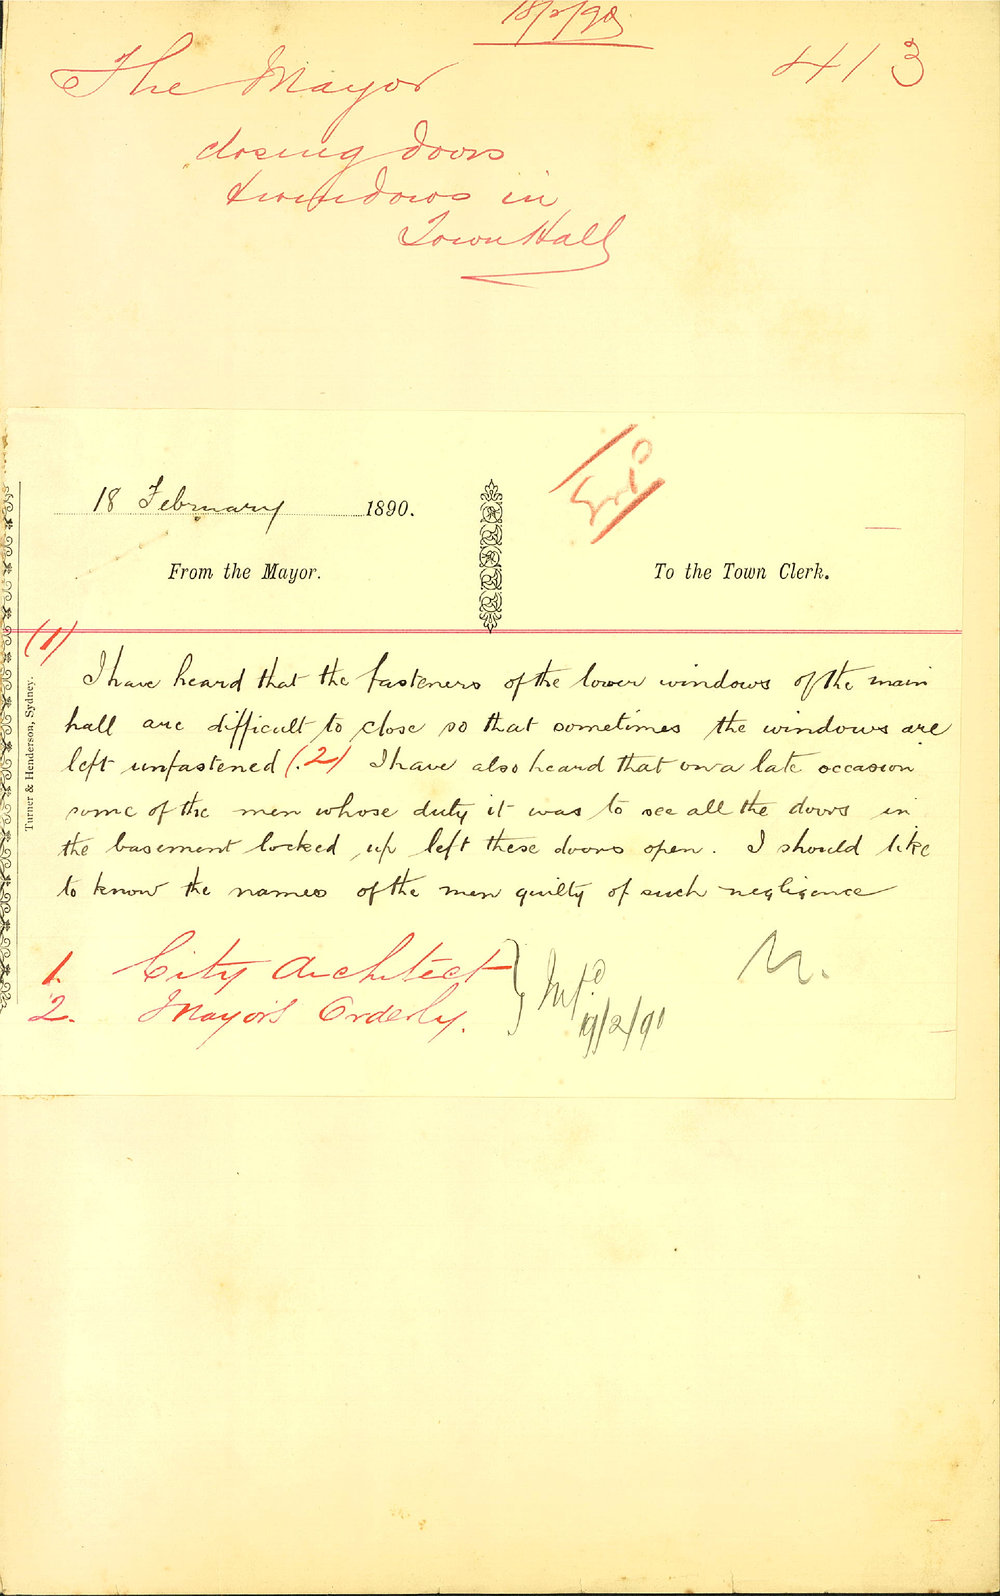 18/2/90
413
The Mayor
closing doors
& windows in
Town Hall
18 February 1890.
From the Mayor.
To the Town Clerk.
Turner & Henderson, Sydney.
(1)
I have heard that the fasteners of the lower windows of the main
hall are difficult to close so that sometimes the windows are
left unfastened (.2) I have also heard that on a late occasion
some of the men whose duty it was to see all the doors in
the basement locked up left these doors open. I should like
to know the names of the men guilty of such negligence
1. City Architect
2. Mayor's Orderly.
19/2/90